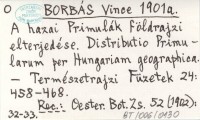 O BORBÁS Vince 1901a.
A hazai Primulák Földrajzi
elterjedése. Distributio Primu-
larum per Hungariam geographica.
- Természetrajzi Füzetek 24:
458-468.
Rec.: Oester. Bot. Zs. 52 (1902):
32-33.
BT/006/0130